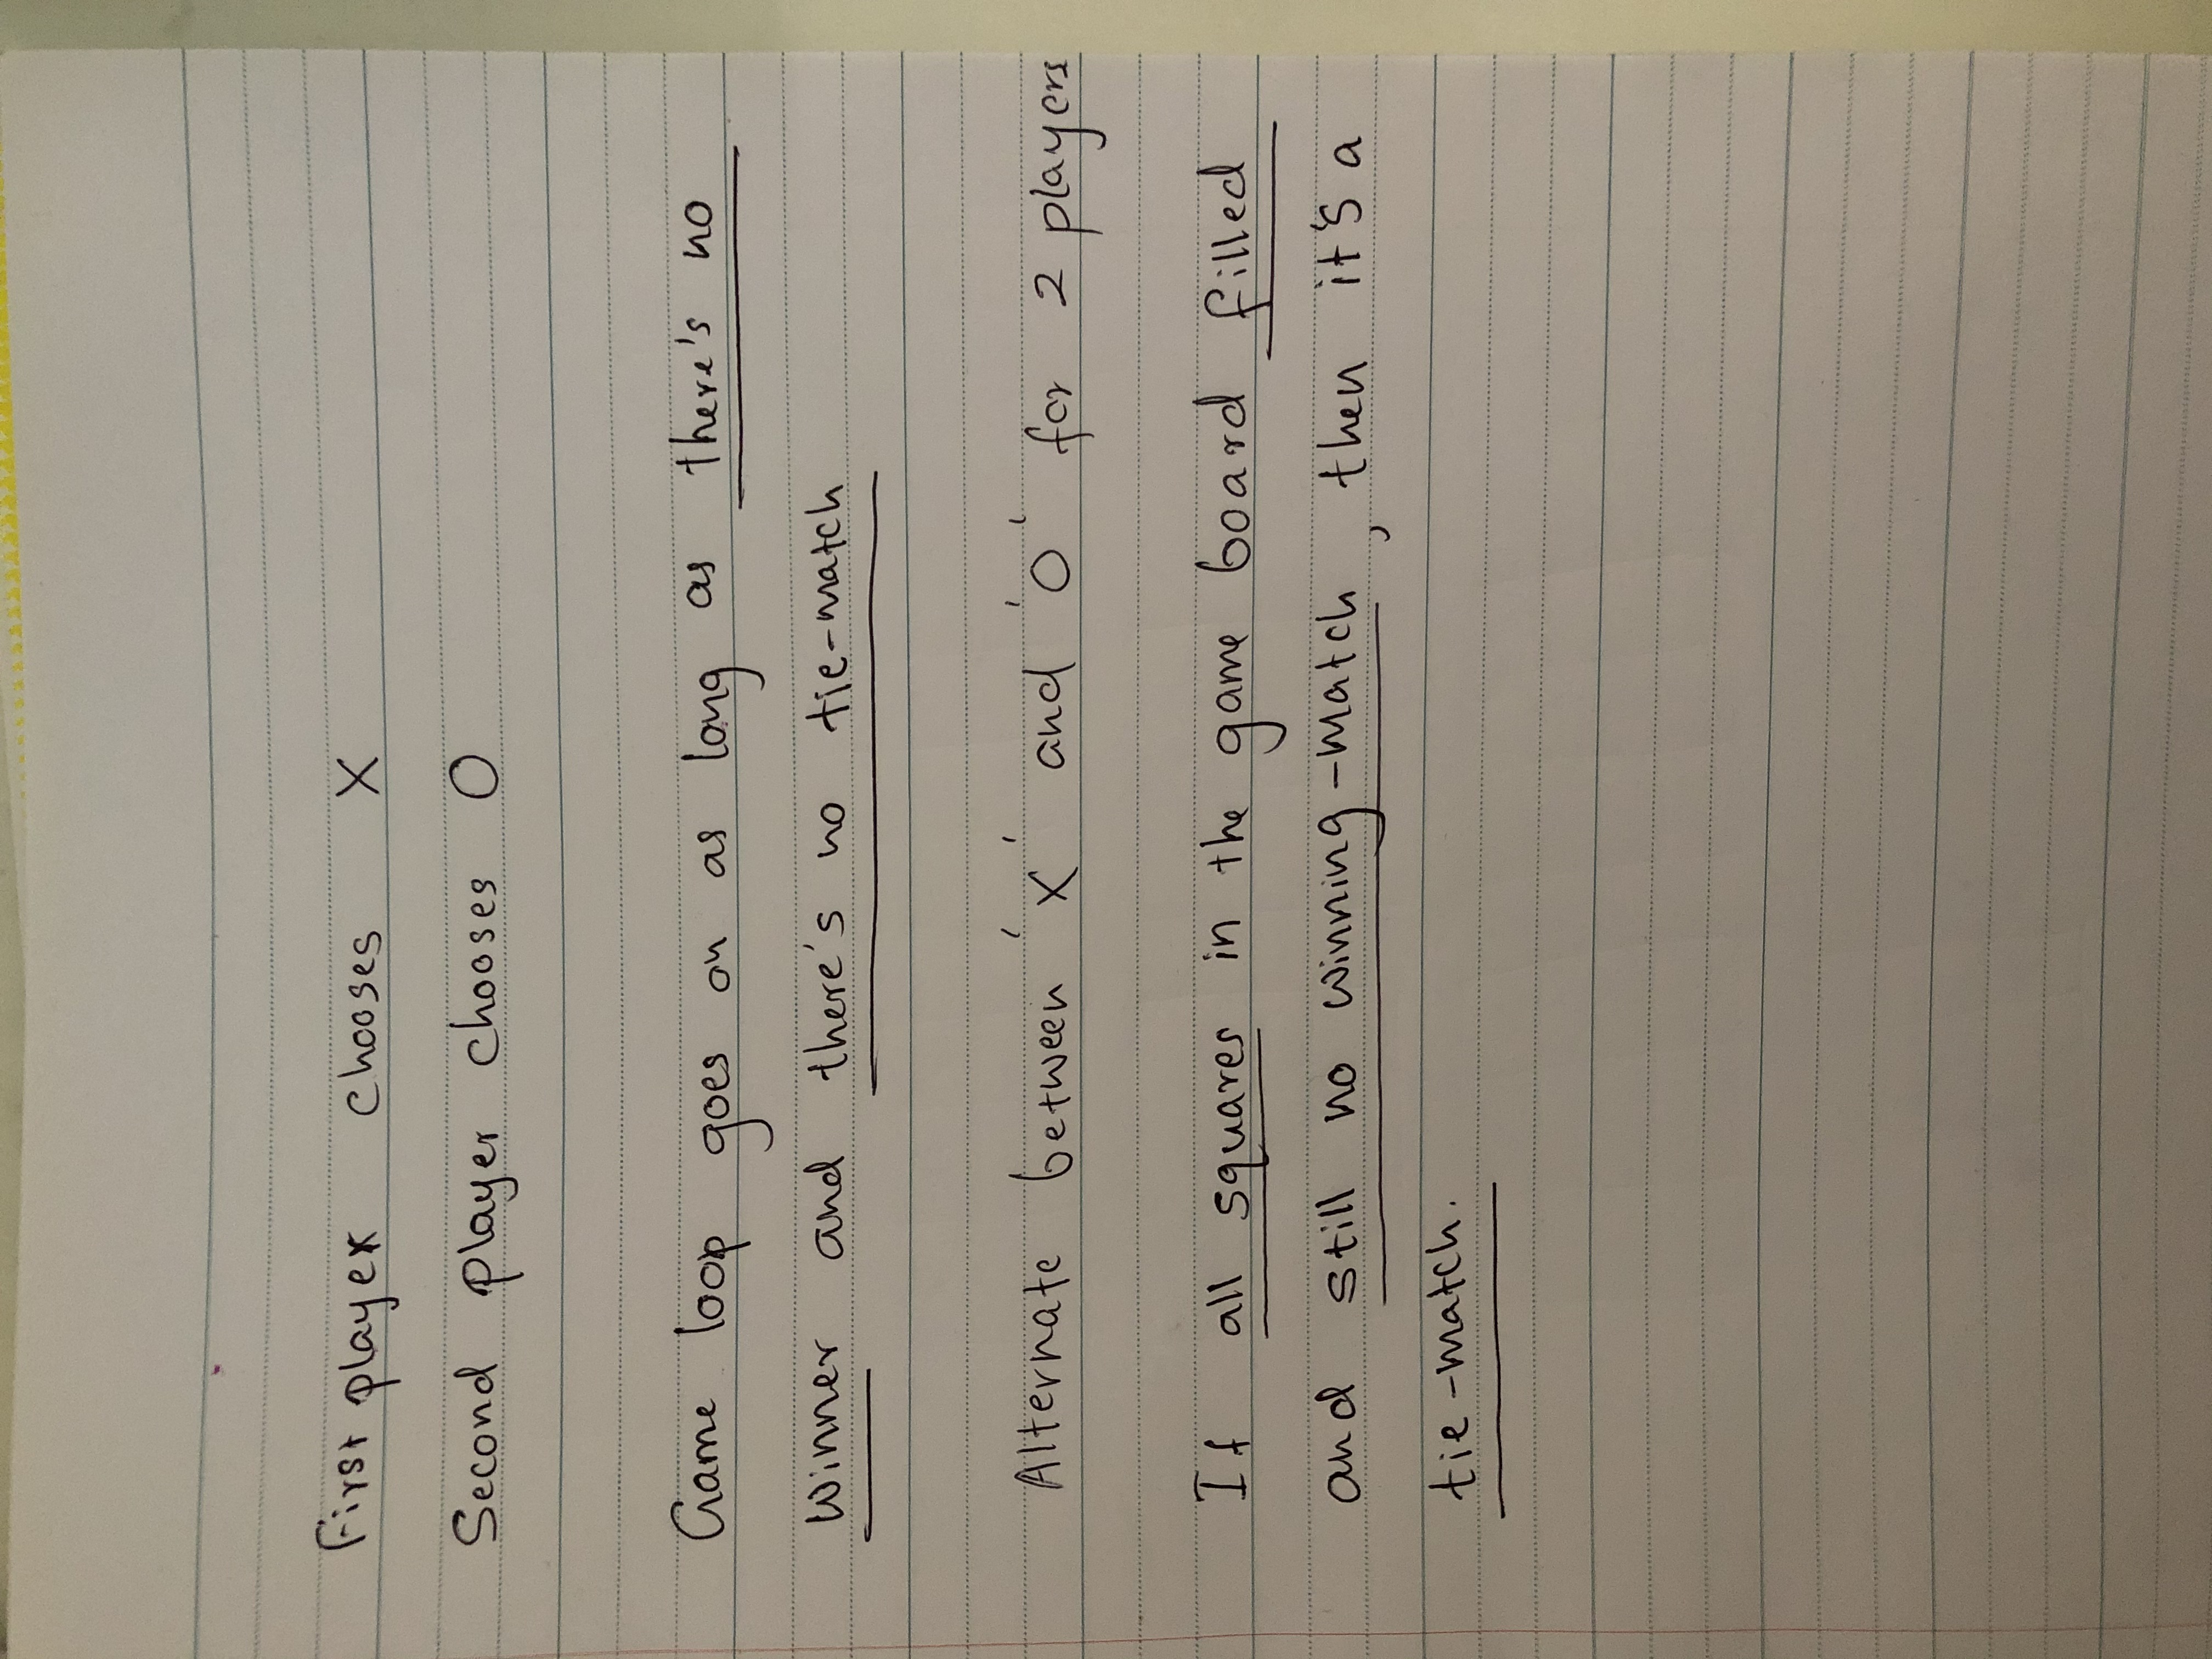 First player chooses X
Second player chooses O
Game loop goes on as long as there's no
winner and there's no tie-match
Alternate between 'X' and 'O' for 2 players
If all squares in the game board filled
and still no winning-match, then it's a
tie-match.